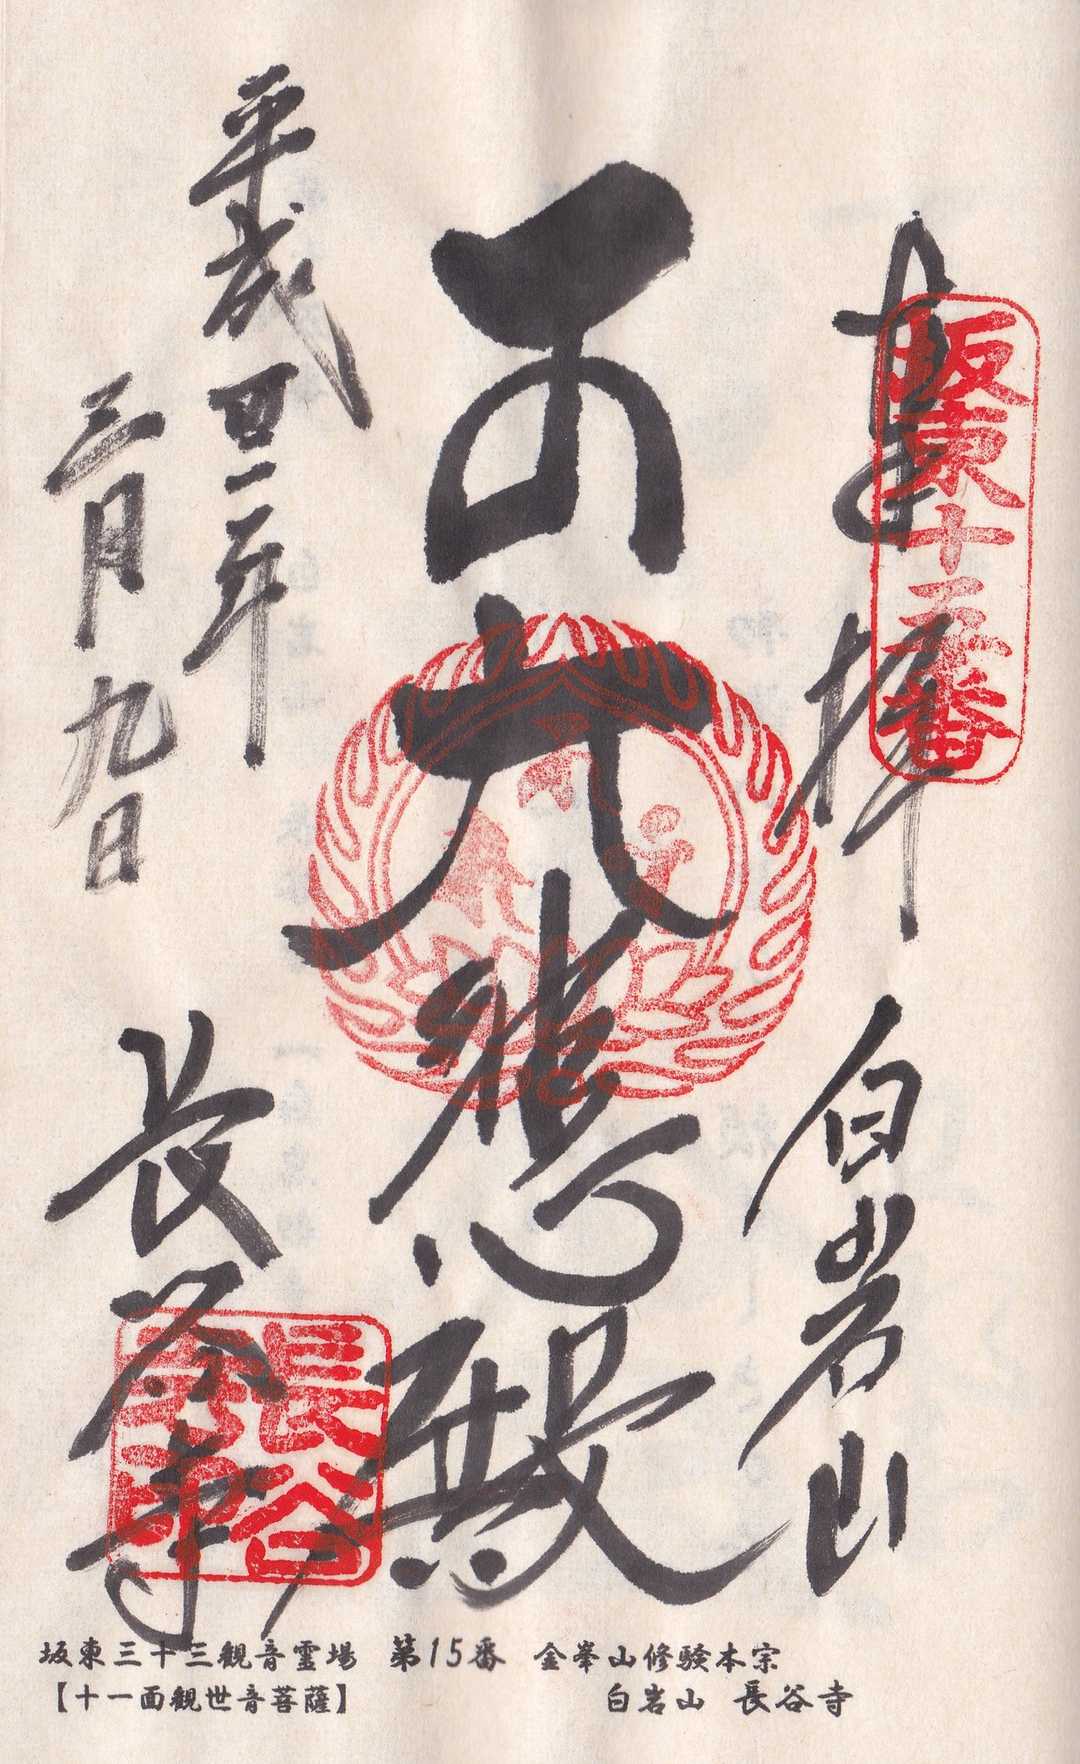 奉拝
坂東十五番
白岩山
六悲殿
平成廿二年
三月九日
長谷寺
長谷寺印
坂東三十三観音霊場 第15番 金峯山修験本宗
【十一面観世音菩薩】 白岩山 長谷寺